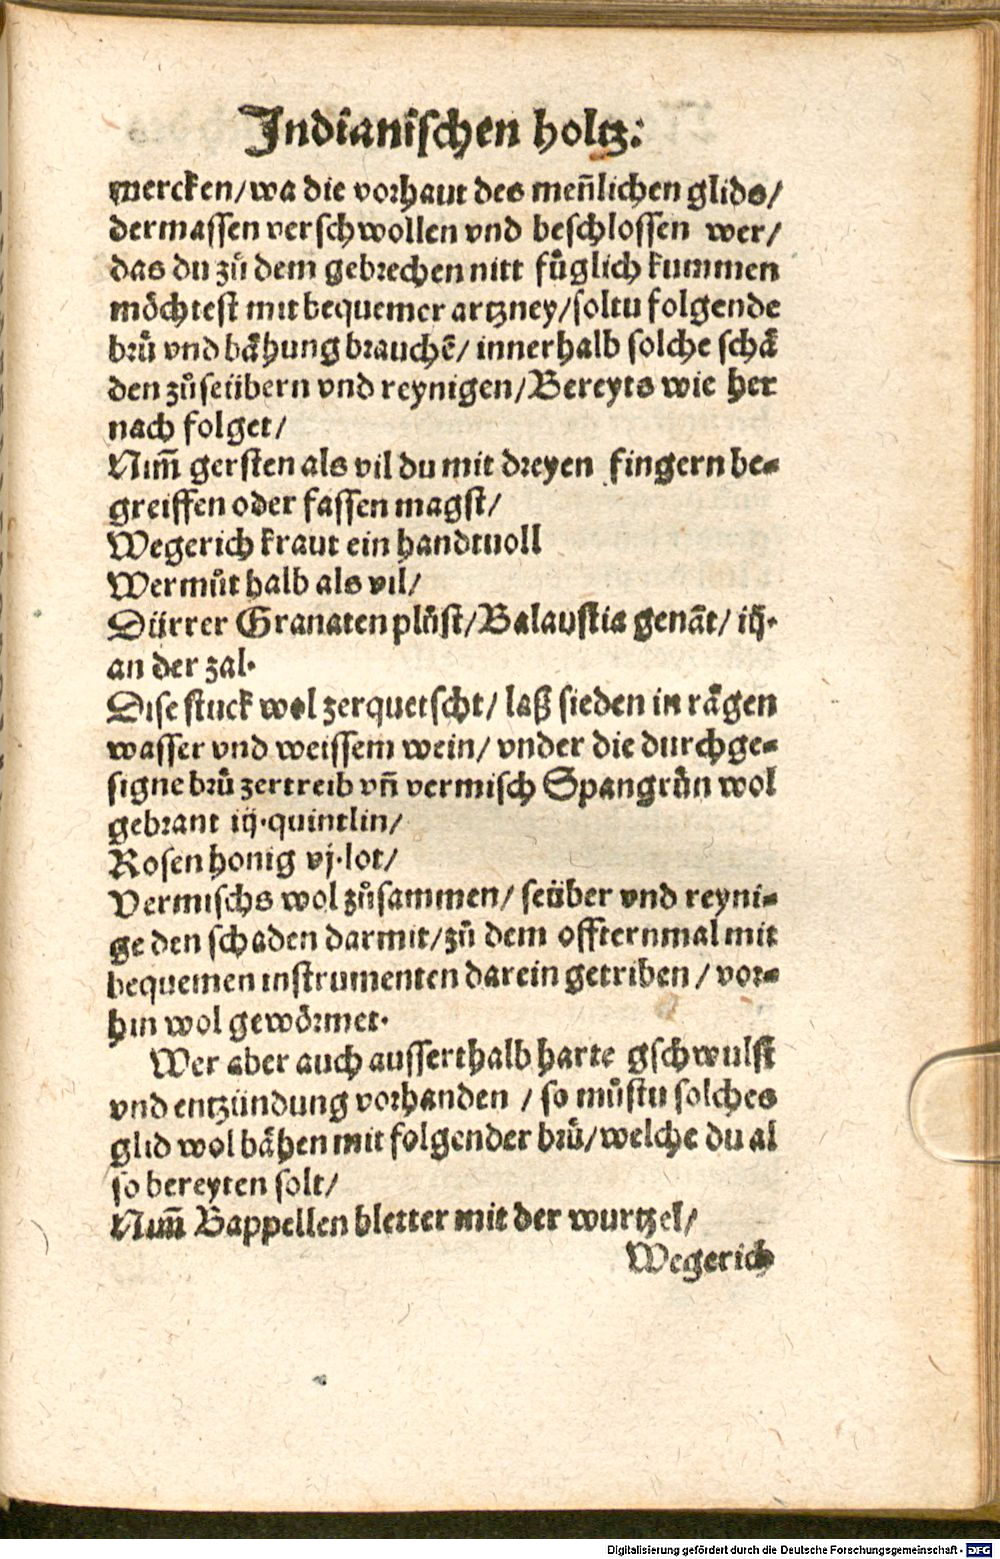 Indianischen holtz.
mercken/wa die vorhaut des meñlichen glids/
dermassen verschwollen vnd beschlossen wer/
das du zů dem gebrechen nitt fůglich kummen
möchtest mit bequemer artzney/soltu folgende
brů vnd båhung brauchē/ innerhalb solche schå
den zůseübern vnd reynigen/Bereyts wie her
nach folget/
Nim̃ gersten als vil du mit dreyen fingern be-
greiffen oder fassen magst/
Wegerich kraut ein handtuoll
Wermůt halb als vil/
Dürrer Granaten plůst/Balaustia genāt/ iij.
an der zal.
Dise stuck wol zerquetscht/ laß sieden in rågen
wasser vnd weissem wein/ vnder die durchge-
signe brů zertreib vñ vermisch Spangrůn wol
gebrant ij.quintlin/
Rosen honig vj.lot/
Vermischs wol zůsammen/ seüber vnd reyni-
ge den schaden darmit/zů dem offternmal mit
bequemen instrumenten darein getriben / vor-
hin wol gewörmet.
Wer aber auch ausserthalb harte gschwulst
vnd entzündung vorhanden / so můstu solches
glid wol båhen mit folgender brů/welche du al
so bereyten solt/
Nim̃ Bappellen bletter mit der wurtzel/
Wegerich
Digitalisierung gefördert durch die Deutsche Forschungsgemeinschaft - DFG